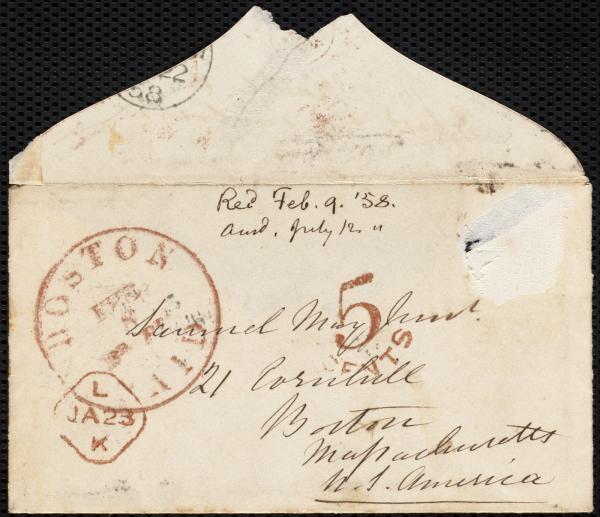 22
58
Rec^d Feb. 9. '58.
Ansd. July 12. "
BOSTON
5
CENTS
Samuel May Junr.
21 Cornhill
Boston
Massachusetts
U.S. America
L
JA23
K